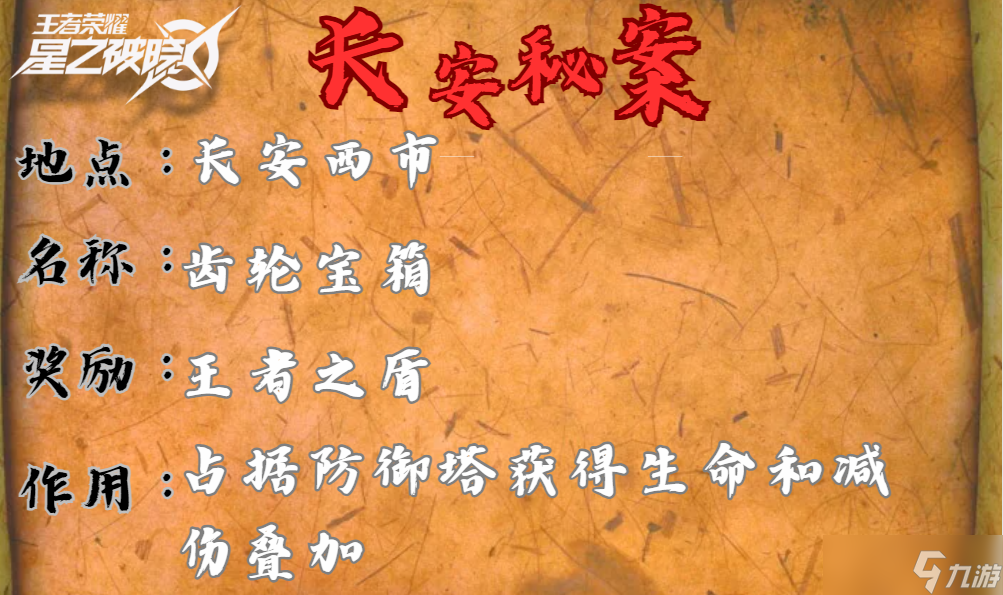 王者荣耀
星之破晓
长安秘案
地点：长安西市
名称：齿轮宝箱
奖励：王者之盾
作用：占据防御塔获得生命和减
伤叠加
九游